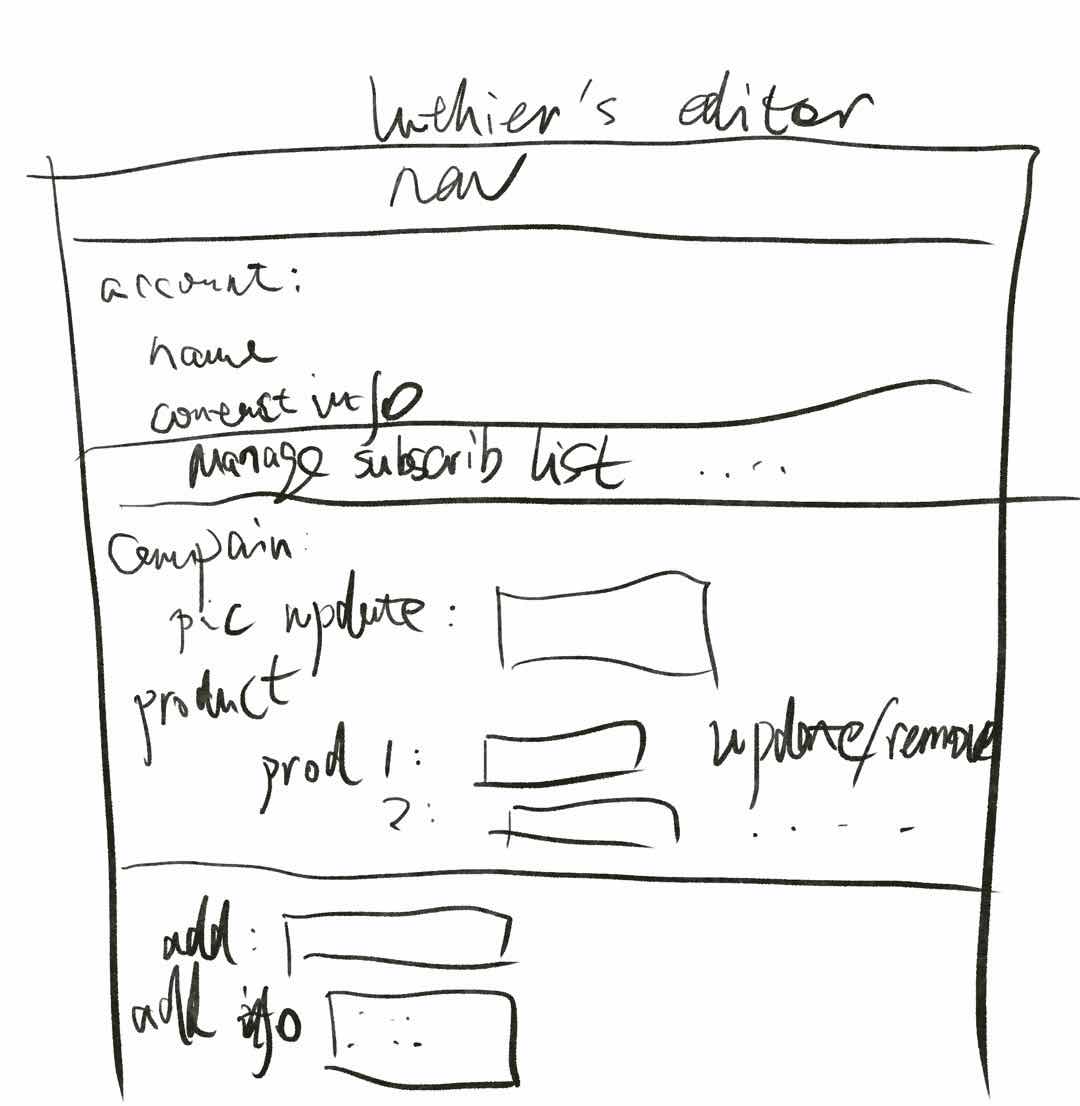 luthier's editor
nav
account:
name
contact info
Manage subscrib list .....
Campain:
pic update:
product
prod 1: update/remove
2: .....
add:
add info